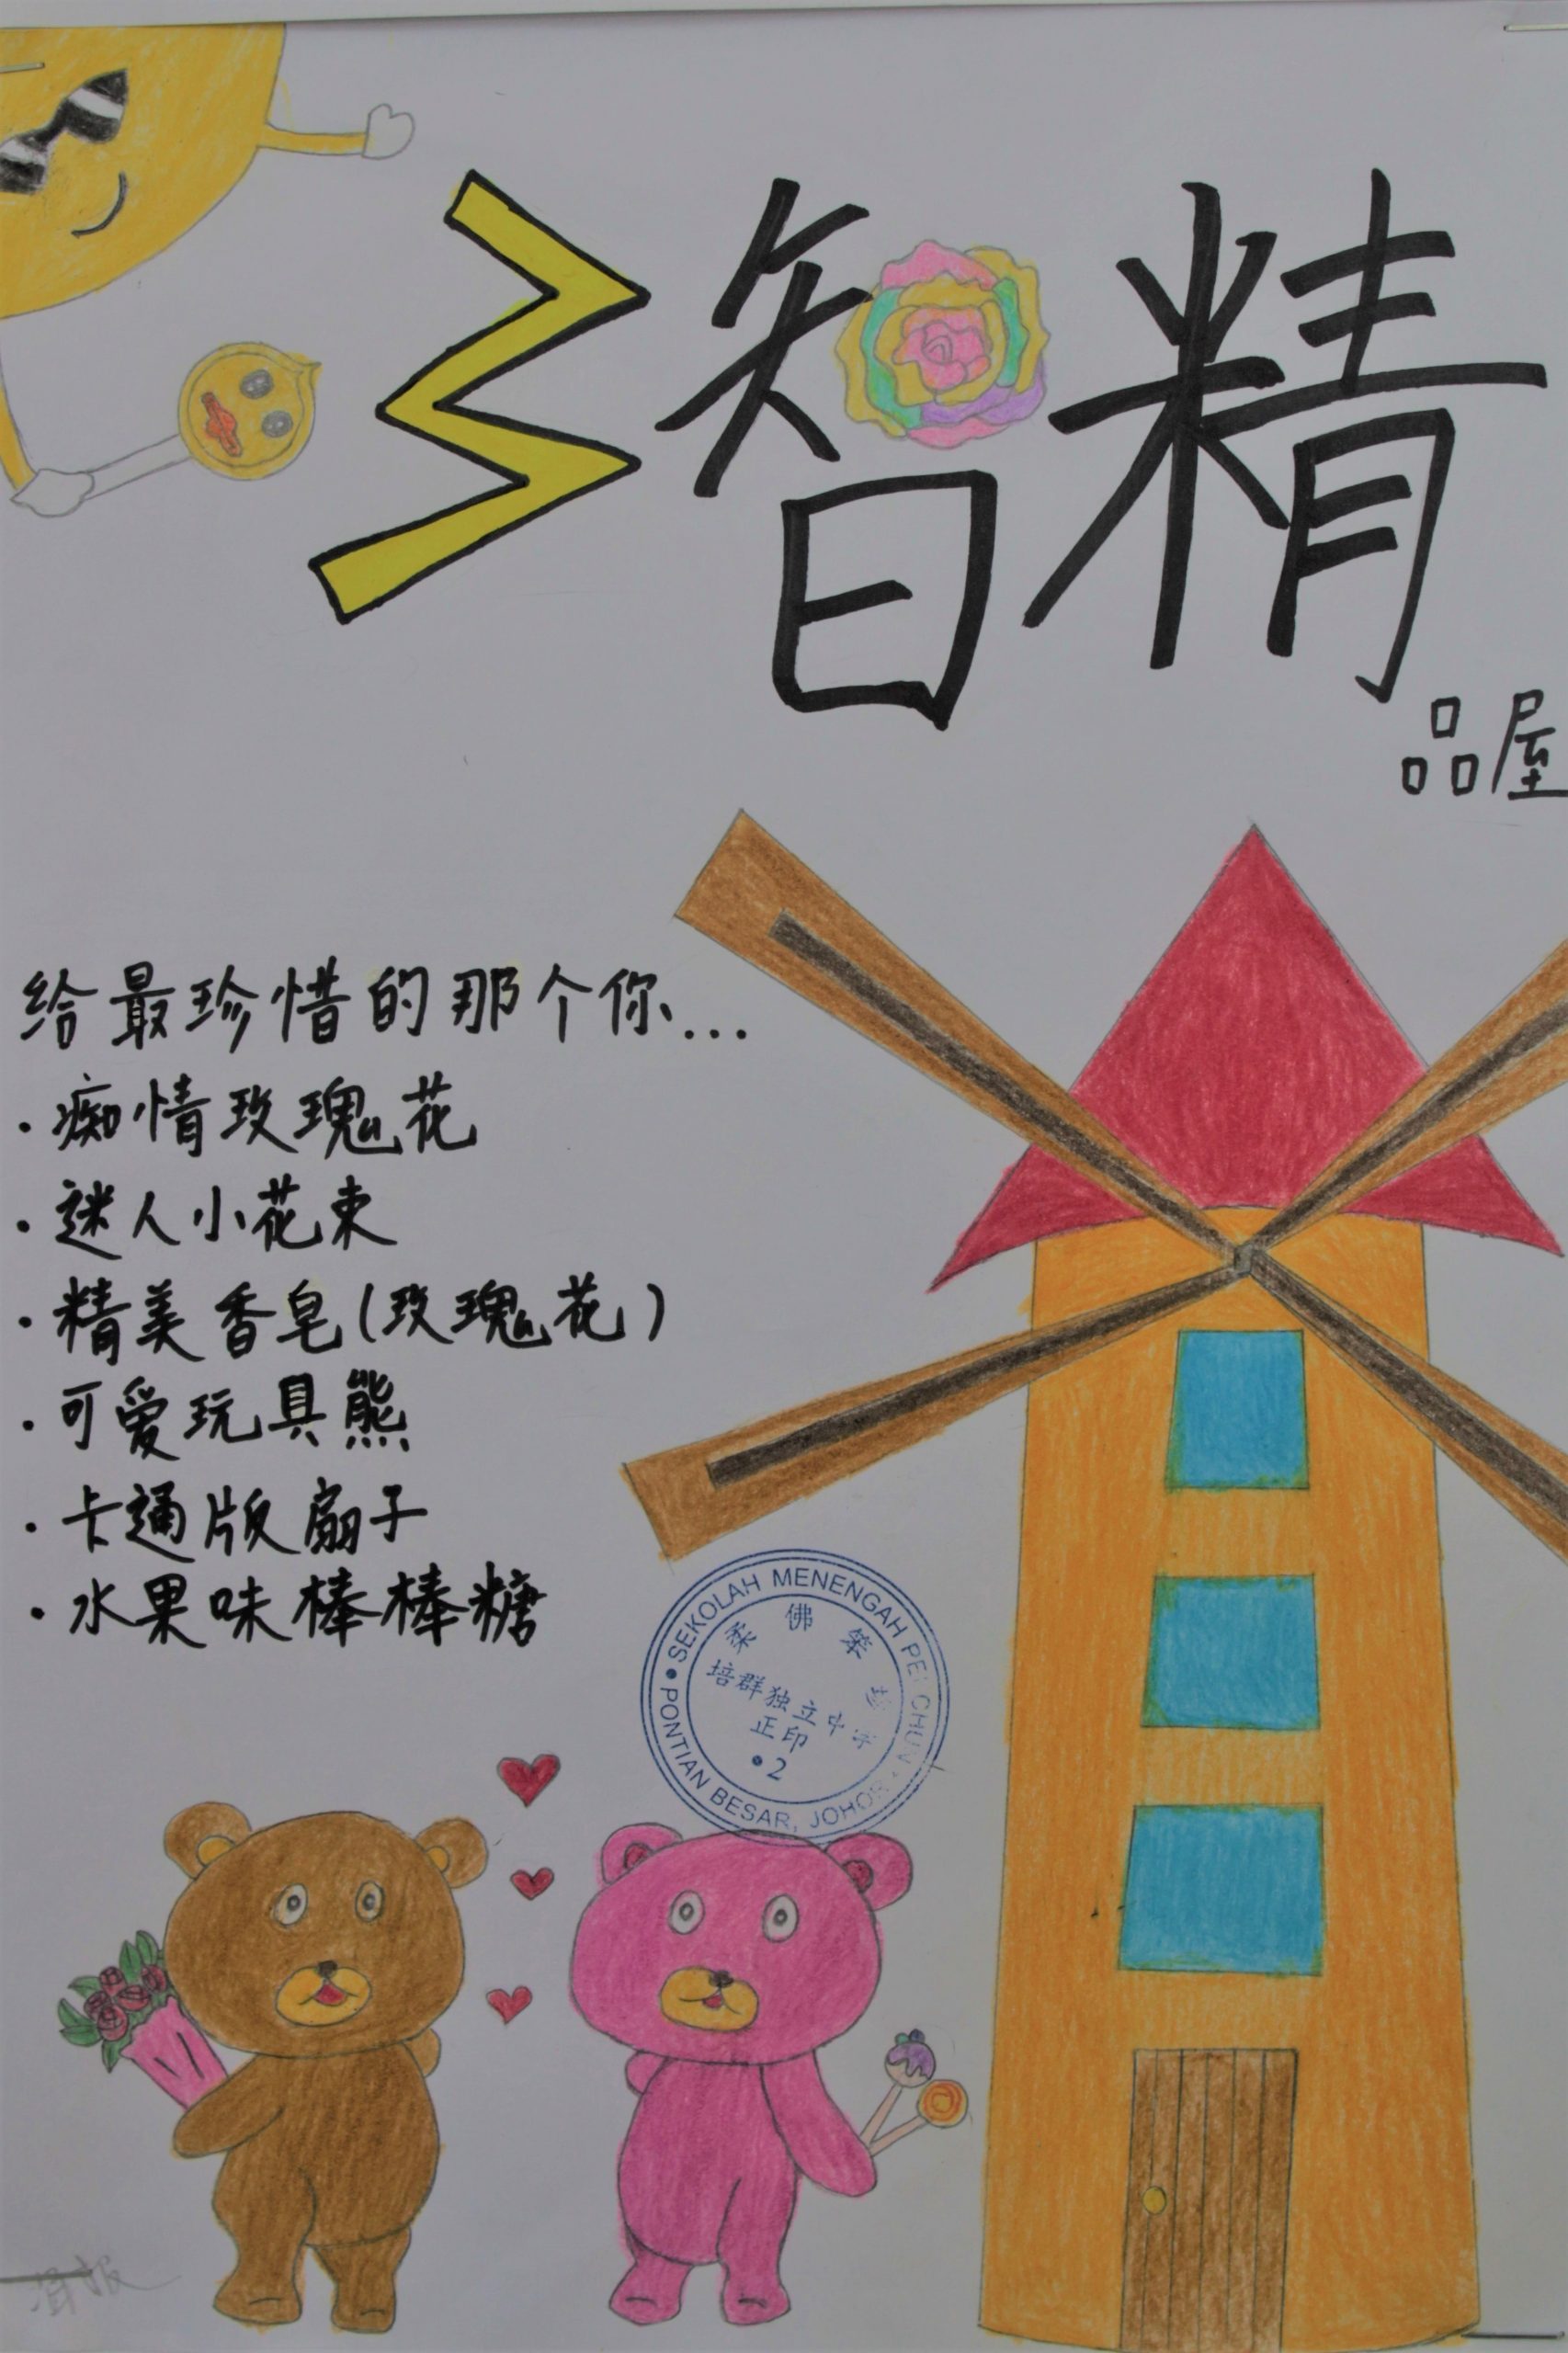 3智精
品屋
给最珍惜的那个你...
·痴情玫瑰花
·迷人小花束
·精美香皂(玫瑰花)
·可爱玩具熊
·卡通版扇子
·水果味棒棒糖
SEKOLAH MENENGAH PEI CHUN
PONTIAN BESAR, JOHOR
佛笨
培群独立中学
正印
•2